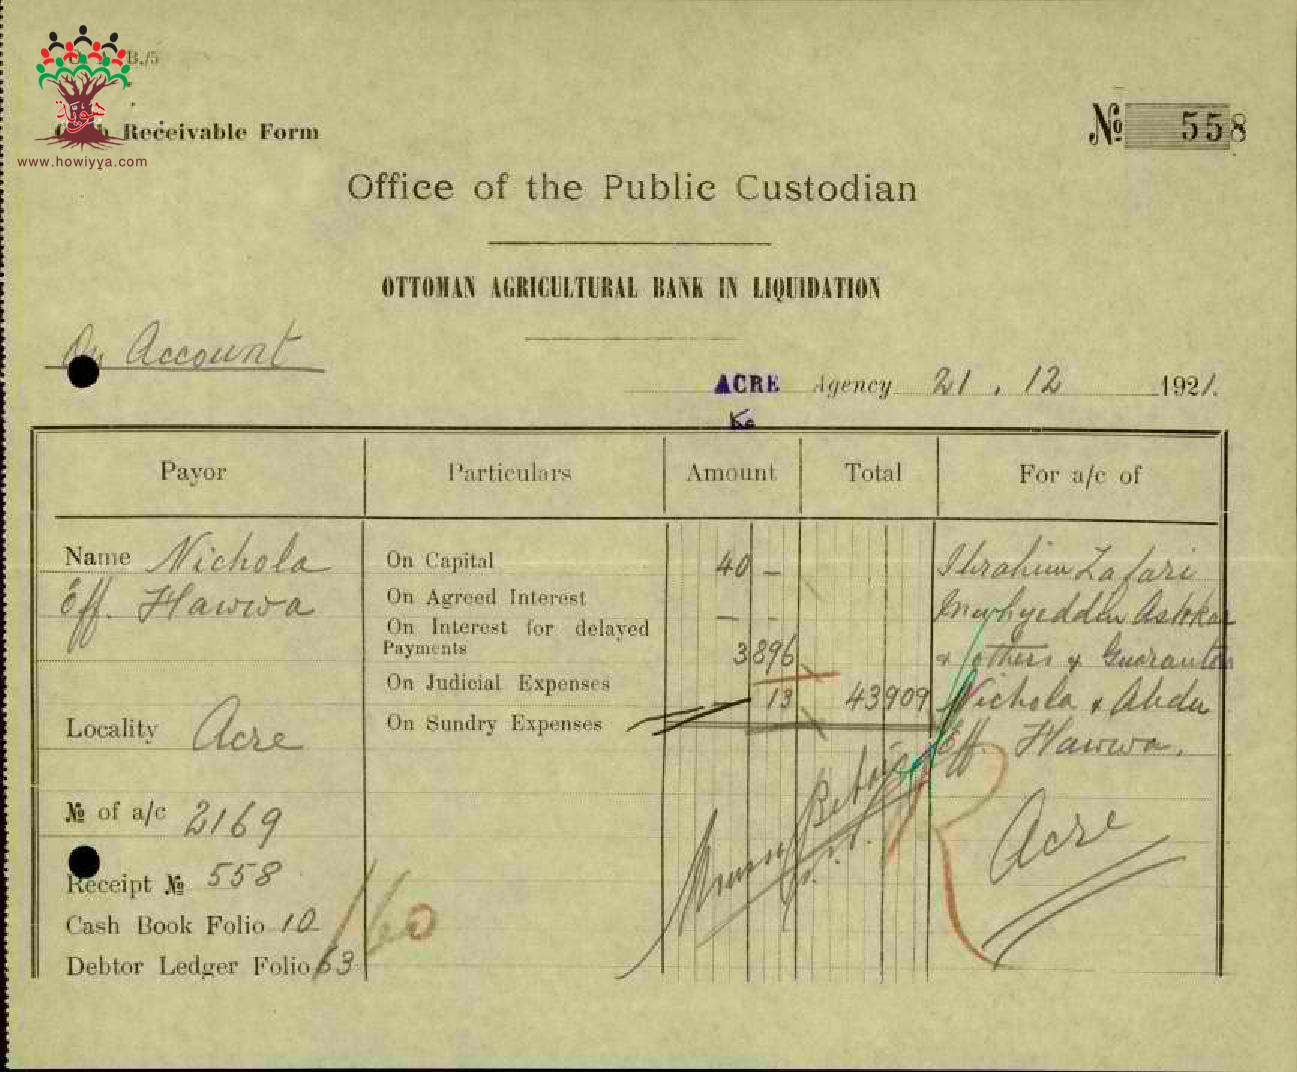 B./5
هوية
www.howiyya.com
Receivable Form
№ 558
Office of the Public Custodian
OTTOMAN AGRICULTURAL BANK IN LIQUIDATION
On Account
ACRE Agency 21 . 12 1921.
Payor Particulars Amount Total For a/c of
Name Nichola On Capital 40 — Ibrahim Zafari
Eff. Hawwa On Agreed Interest — — Ashkar
On Interest for delayed
Payments 3 896 & others & Guarantors
On Judicial Expenses 13 43 909 Nichola & Abdu
On Sundry Expenses Eff. Hawwa.
Locality Acre
Acre
№ of a/c 2169
Receipt № 558
Cash Book Folio 10
Debtor Ledger Folio 63